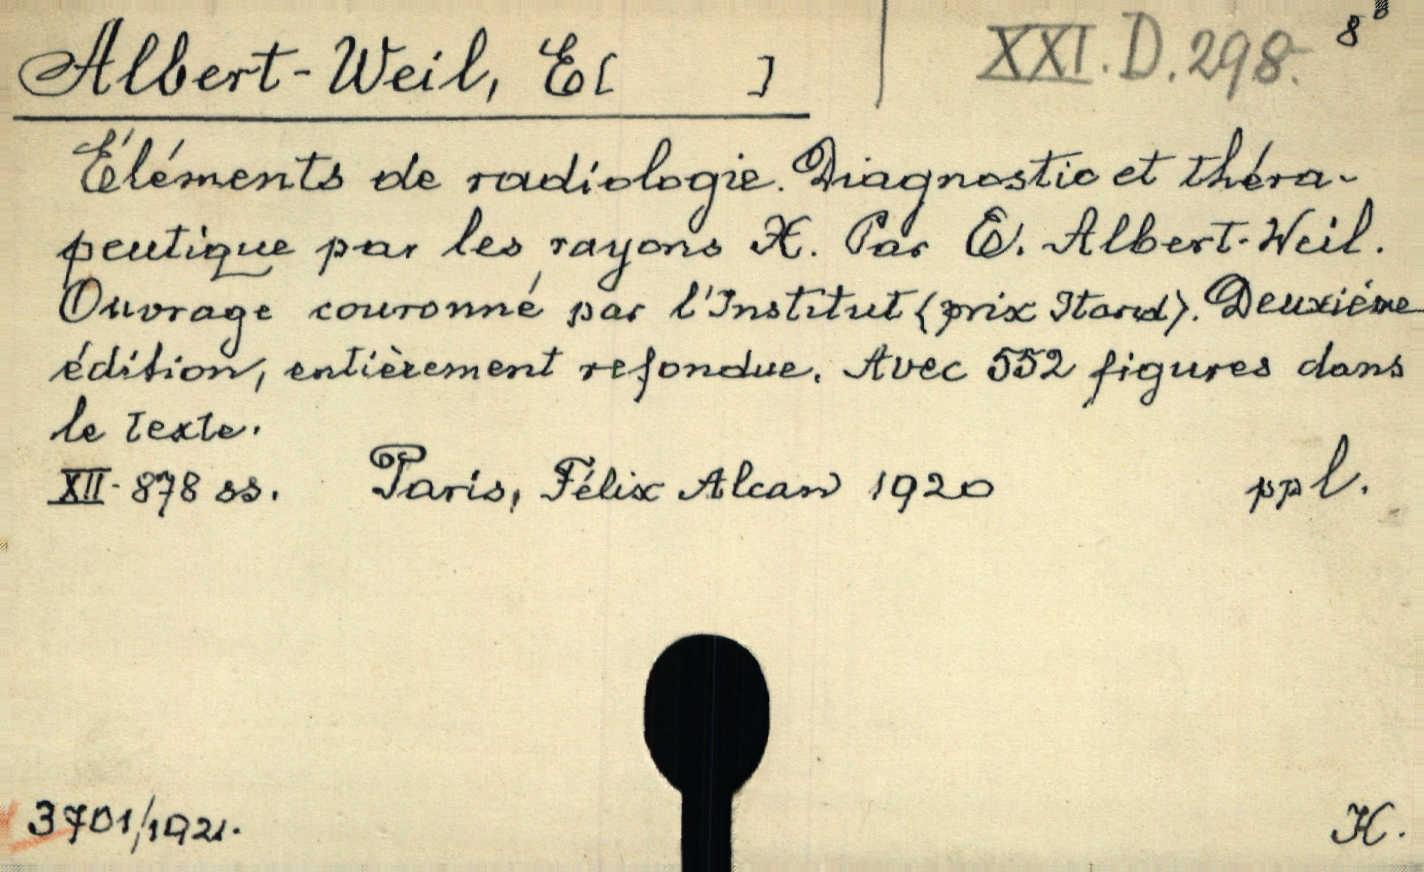 Albert-Weil, E[ ]
XXI. D. 298. 8°
Éléments de radiologie. Diagnostic et théra-
peutique par les rayons X. Par E. Albert-Weil.
Ouvrage couronné par l'Institut (prix Itard). Deuxiéme
édition, entièrement refondue. Avec 552 figures dans
le texte.
XII-878 ss. Paris, Félix Alcan 1920 ppl.
3701/1921.
H.